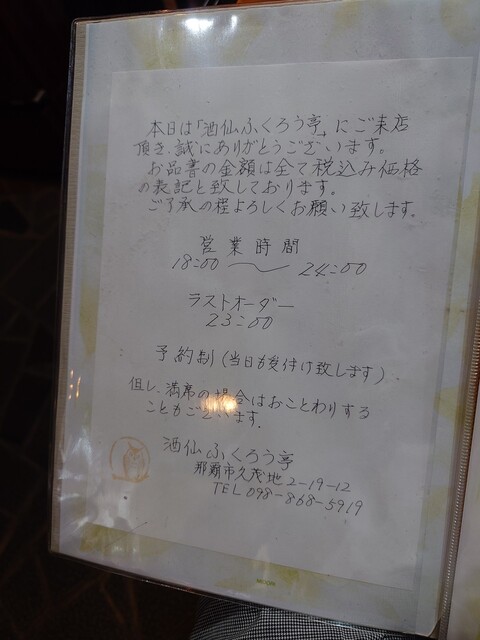 本日は「酒仙ふくろう亭」にご来店
頂き、誠にありがとうございます。
お品書の金額は全て税込み価格
の表記と致しております。
ご了承の程よろしくお願い致します。
営業時間
18:00 〜 24:00
ラストオーダー
23:00
予約制(当日も受付け致します)
但し、満席の場合はおことわりする
こともございます。
酒仙ふくろう亭
那覇市久茂地2-19-12
TEL 098-868-5919